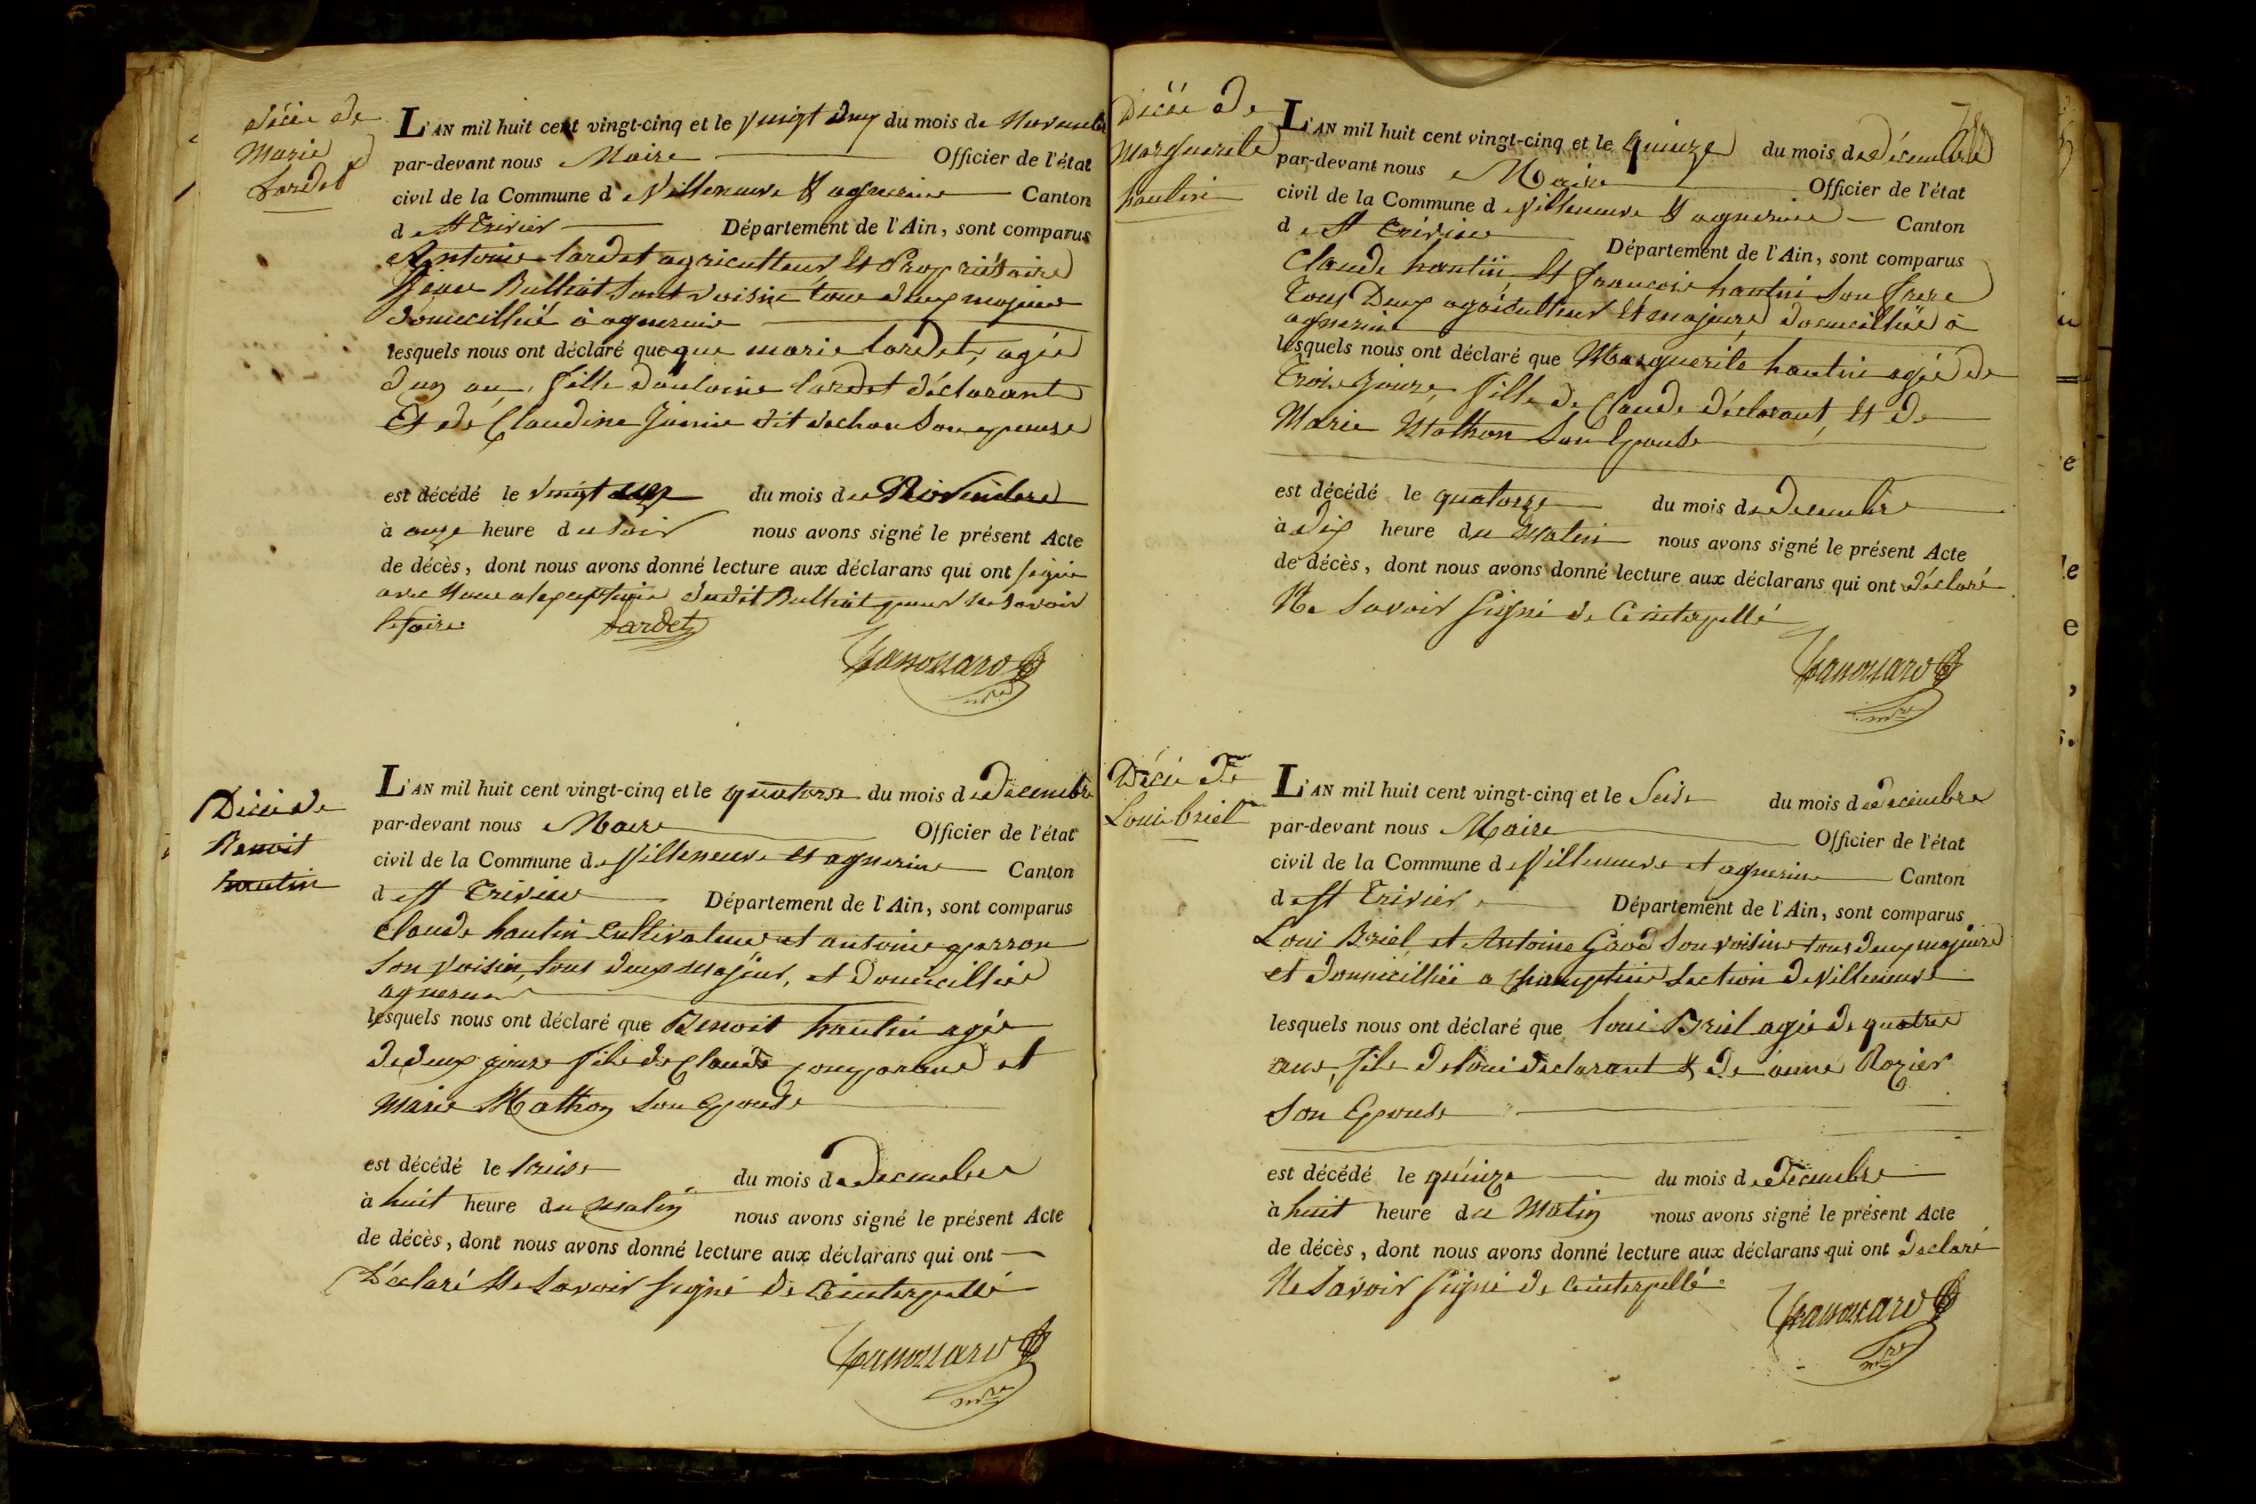 Décée de
Marie
Lardet
L'AN mil huit cent vingt-cinq et le vingt deux du mois de Novembre
par-devant nous Maire Officier de l'état
civil de la Commune de Villeneuve & agnerins Canton
de St Trivier Département de l'Ain, sont comparus
Antoine lardet agriculteur et Propriétaire
Bulliat voisin tous deux majeur
domicillié à agnerins
lesquels nous ont déclaré que que marie lardet, agée
d'un an, fille d'antoine lardet déclarant
Et de Claudine dit son epouse
est décédé le vingt un du mois de Novembre
à onze heure du soir nous avons signé le présent Acte
de décès, dont nous avons donné lecture aux déclarans qui ont signé
avec Nous dudit Bulliat pour ne savoir
le faire. Lardet
mre
Décée de
Benoit
hautin
L'AN mil huit cent vingt-cinq et le quatorze du mois de Décembre
par-devant nous Maire Officier de l'état
civil de la Commune de Villeneuve et agnerins Canton
de St Trivier Département de l'Ain, sont comparus
Claude hautin Cultivateur et antoine perron
son voisin, tous deux majeur, et domicillié
agnerins
lesquels nous ont déclaré que Benoit hautin agée
de deux jours fils de Claude comparant et
Marie Mathon son Epouse
est décédé le treise du mois de Decembre
à huit heure du matin nous avons signé le présent Acte
de décès, dont nous avons donné lecture aux déclarans qui ont
Déclaré Ne Savoir signé de ce interpellé
mre
Décée de
Marguerite
hautin
L'AN mil huit cent vingt-cinq et le quinze du mois de Décembre
par-devant nous Maire Officier de l'état
civil de la Commune de Villeneuve & agnerins Canton
de St Trivier Département de l'Ain, sont comparus
Claude hautin et francois hautin son frere
Tous Deux agriculteur et majeure domicilliée à
agnerins
lesquels nous ont déclaré que Marguerite hautin agée de
Trois Jours, fille de Claude déclarant, et de
Marie Mathon son Epouse
est décédé le quatorze du mois de Decembre
à dix heure du Matin nous avons signé le présent Acte
de décès, dont nous avons donné lecture aux déclarans qui ont déclaré
Ne Savoir signé de ce interpellé
mre
Décée de
Loui briel
L'AN mil huit cent vingt-cinq et le Seise du mois de Decembre
par-devant nous Maire Officier de l'état
civil de la Commune de Villeneuve et agnerins Canton
de St Trivier Département de l'Ain, sont comparus
Loui Briel et Antoine son voisin tous deux majeure
et domicilliée a section de Villeneuve
lesquels nous ont déclaré que loui Briel agée de quatre
ans, fils de loui declarant & de anne Rozier
son Epouse
est décédé le quinze du mois de Décembre
à huit heure du Matin nous avons signé le présent Acte
de décès, dont nous avons donné lecture aux déclarans qui ont declaré
Ne Savoir signé de ce interpellé.
mre